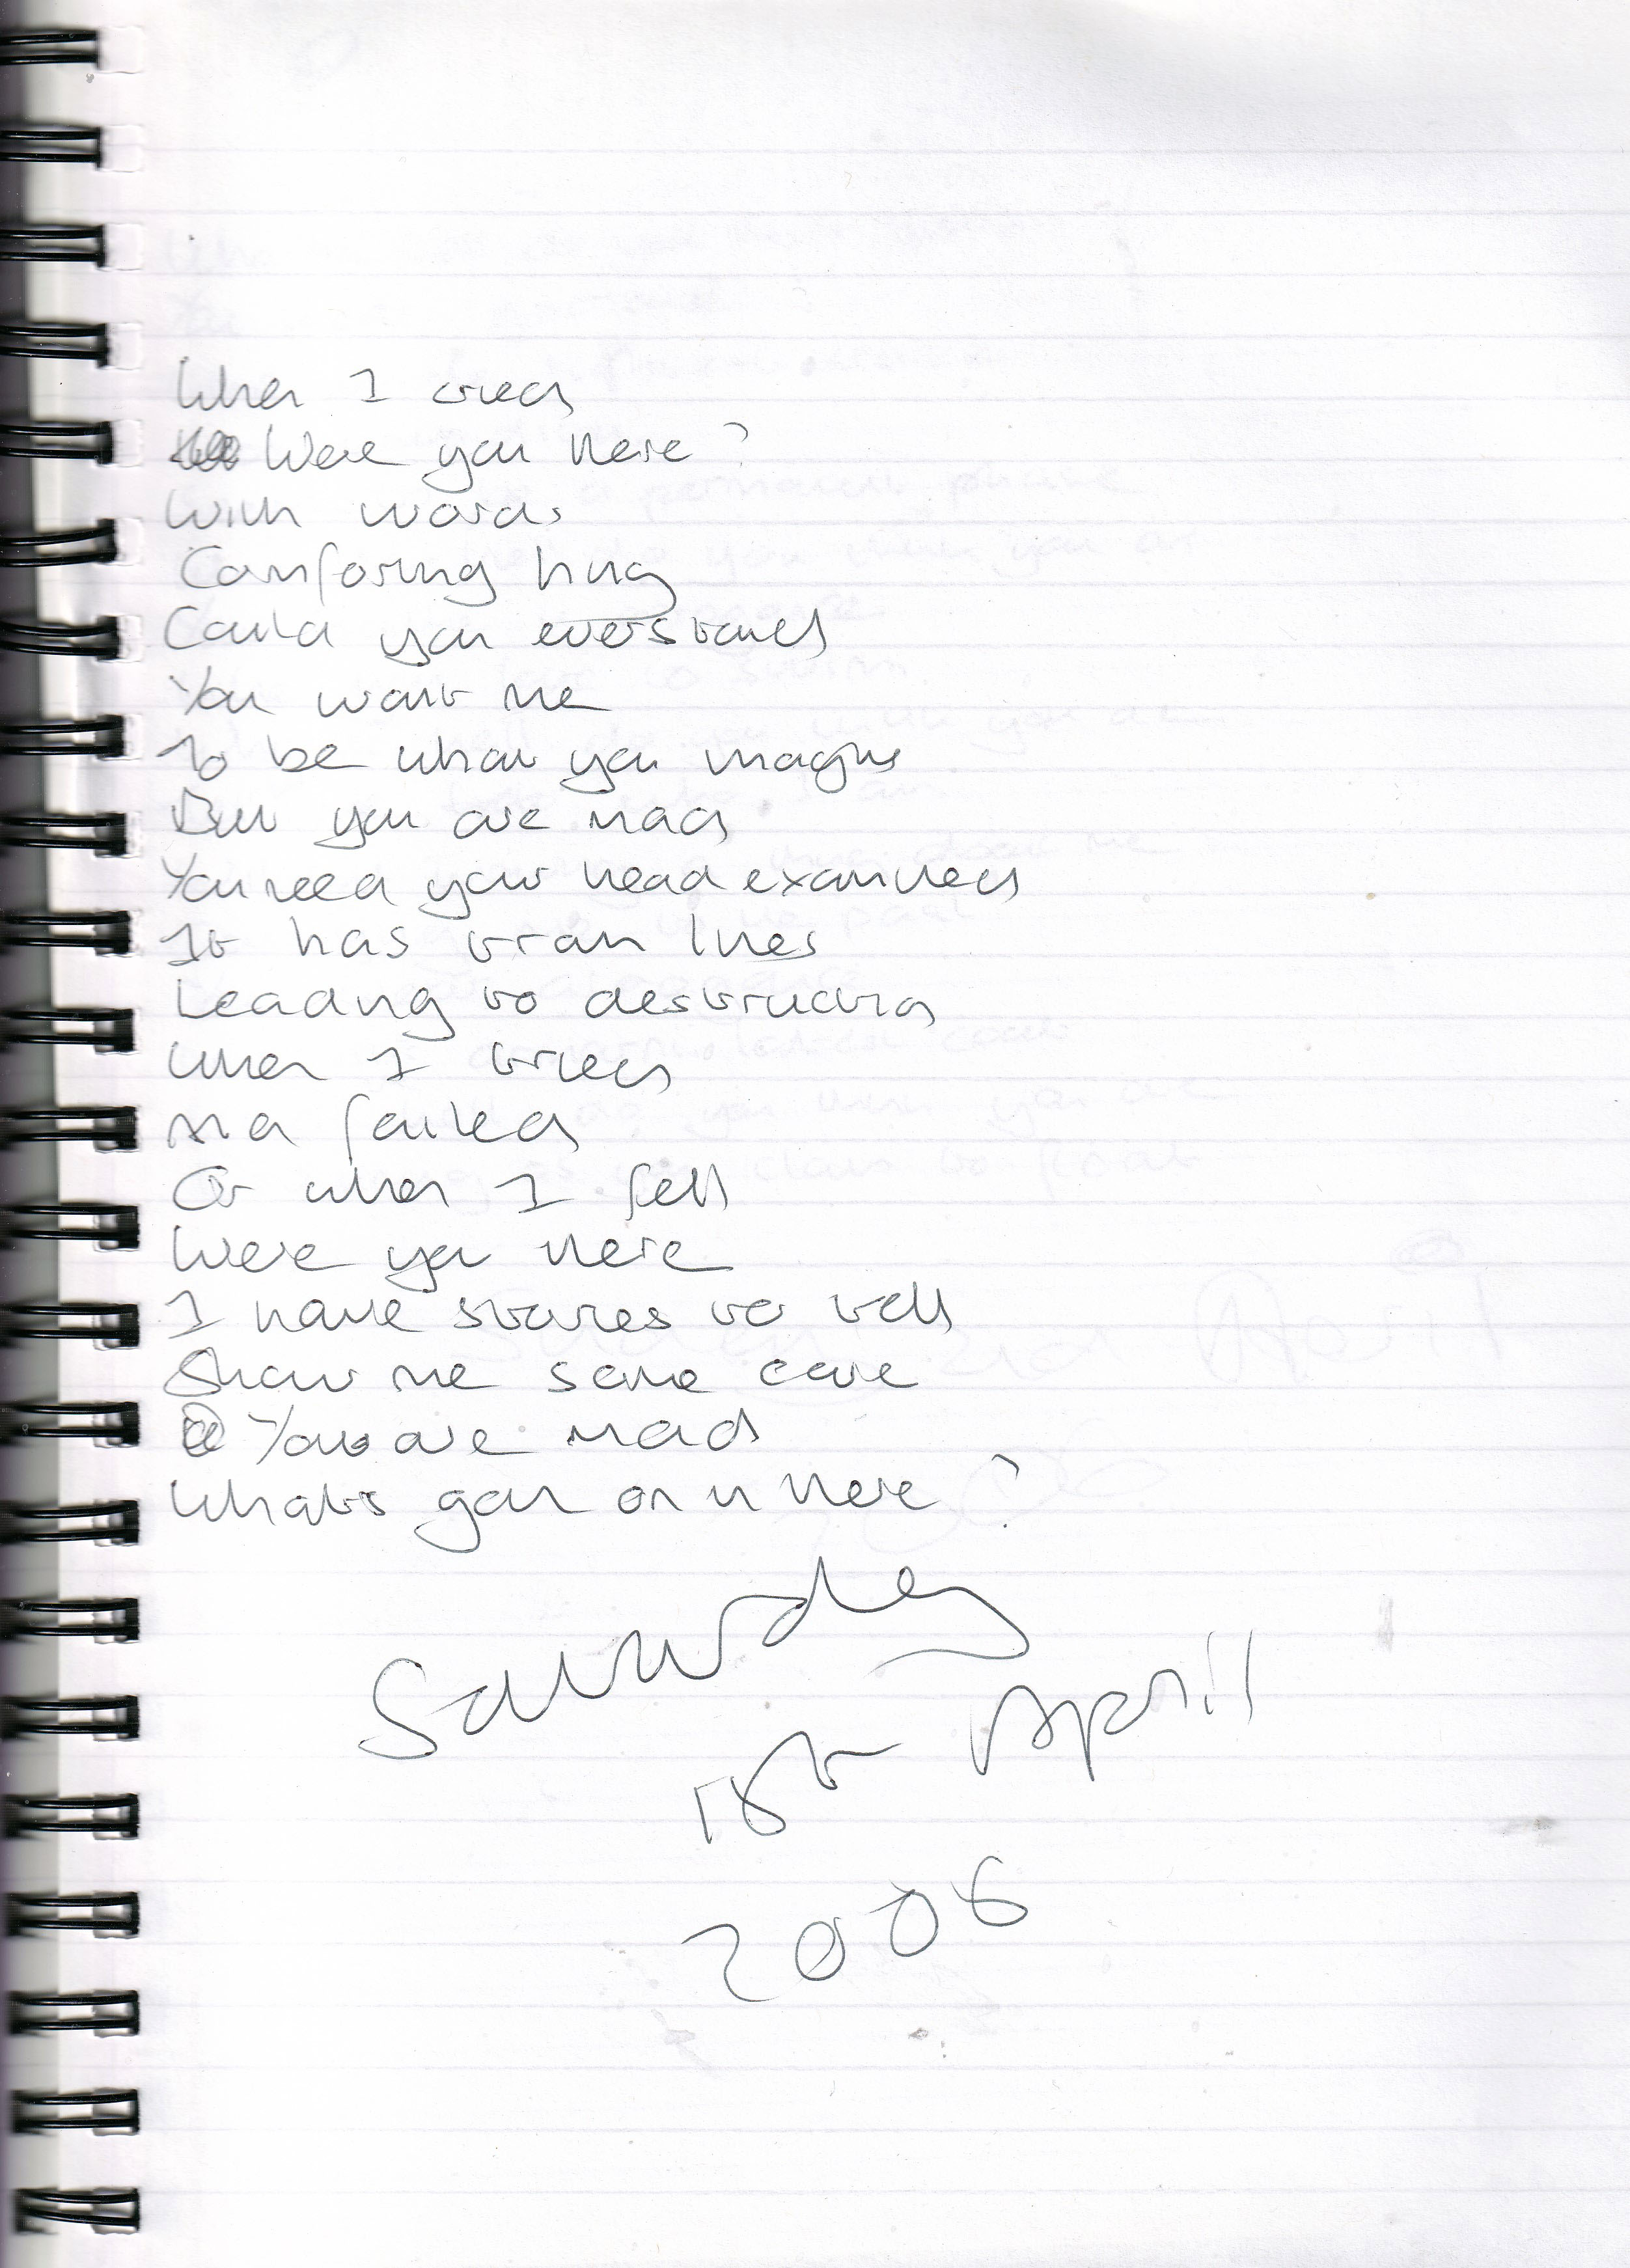 When I cried
Were you there?
With words
Comforing hug
Could you everstand
You want me
To be what you imagine
But you are mad
You need your head examined
It has tram lines
Leading to destruction
When I tried
And failed
Or when I fell
Were you there
I have stories to tell
Show me some care
You are mad
Whats goin on in there?
Saturday
18th April
2008